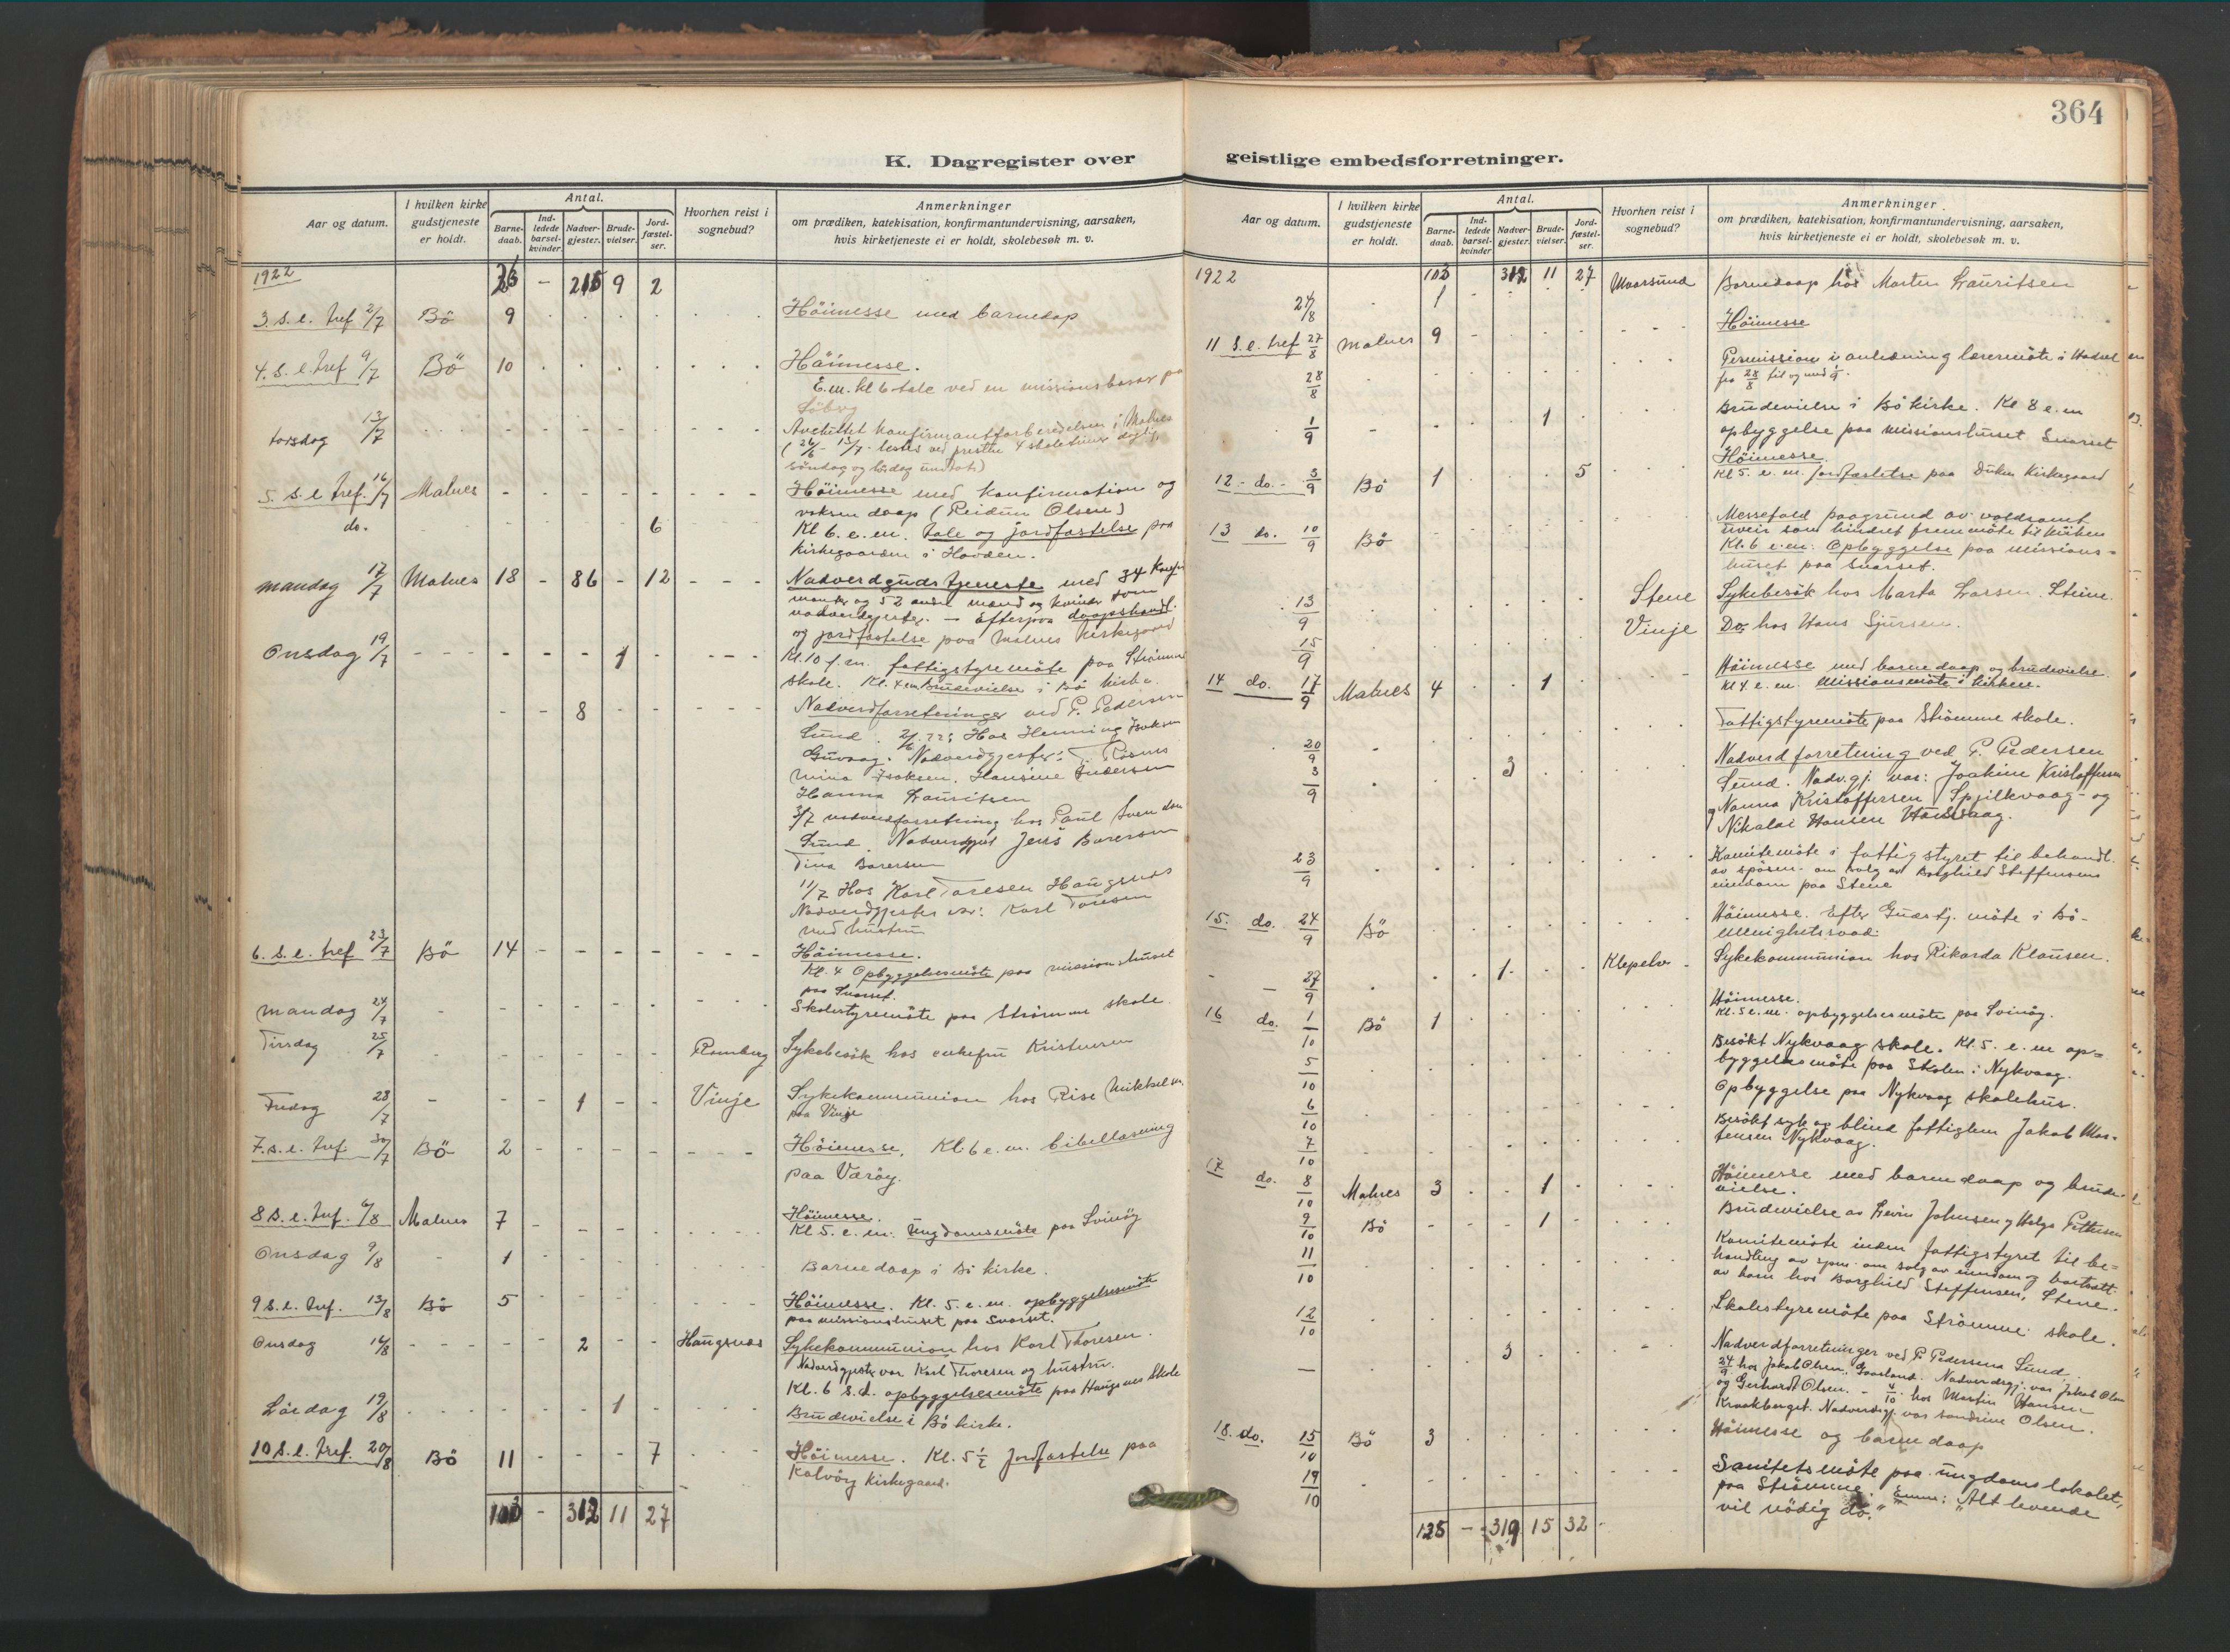 364
K. Dagregister over
Aar og datum.
I hvilken kirke
gudstjeneste
er holdt.
Antal.
Barne-
daab.
Ind-
ledede
barsel-
kvinder.
Nadver-
gjester.
Brude-
vielser.
Jord-
fæstel-
ser.
Hvorhen reist i
sognebud?
Anmerkninger
om prædiken, katekisation, konfirmantundervisning, aarsaken,
hvis kirketjeneste ei er holdt, skolebesøk m. v.
1922 - 215 9 2
3. S. e. tref 2/7 Bö 9 Höimesse med barnedap
4. S. e. tref 9/7 Bö 10 Höimesse.
E.m. kl 6 tale ved en missionsbasar paa
torsdag 13/7 Avsluttet konfirmantforberedelsen i Malnes
söndag og lördag undtat)
5. S. e. tref. 16/7 Malnes Höimesse med konfirmation og
voksen daap (Reidun Olsen)
do. 6 Kl 6. e. m. tale og jordfæstelse paa
kirkegaarden i Hovden.
mandag 17/7 Malnes 18 - 86 - 12 - - - Nadverdgudstjeneste med 34 konfir
manter og 52 andre mænd og kvinder som
nadverdgjester. - Efterpaa daapshandl.
og jordfæstelse paa Malnes kirkegaard
Onsdag 19/7 1 Kl. 10 f. m. fattigstyremöte paa Strömme
skole. Kl. 4 em Brudevielse i Bö kirke.
8 Nadverdforretninger ved P. Pedersen
Sund. Hos Henning Isaksen
Guvaag. Nadverdgjester:
Mina Isaksen, Hansine Andersen
Hanna Lauritsen
3/7 nadverdforretning hos Paul Svendsen
Sund. Nadverdgjest Jens Barersen
Tina Barersen
11/7 Hos Karl Toresen Haugsnes
Nadverdgjester var: Karl Toresen
med hustru
6. S. e. tref 23/7 Bö 14 Höimesse.
Kl. 4 Opbyggelsesmöte paa missionshuset
paa Snarset.
mandag 24/7 Skolestyremöte paa Strömme skole.
Tirsdag 25/7 Ramberg Sykebesök hos enkefru Kristensen
Fredag 28/7 1 Vinje Sykekommunion hos Rise Mikkelsen
paa Vinje
7. s. e. tref. 30/7 Bö 2 Höimesse. Kl. 6 e. m. bibellæsning
paa Væröy.
8 S. e. tref. 6/8 Malnes 7 Höimesse.
Kl 5. e. m. Ungdomsmöte paa Svinöy
Onsdag 9/8 1 Barnedaap i Bö kirke.
9 S. e. tref. 13/8 Bö 5 Höimesse. Kl. 5. e. m. opbyggelsesmöte
paa missionshuset paa Snarset.
Onsdag 16/8 2 Haugsnes Sykekommunion hos Karl Thoresen.
Nadverdgjester var Karl Thoresen og hustru.
Kl. 6 s.d. opbyggelsesmöte paa Haugsnes Skole
Lördag 19/8 1 Brudevielse i Bö kirke.
10 S. e. tref. 20/8 Bö 11 7 Höimesse. Kl. 5 1/2 Jordfæstelse paa
Kalvöy kirkegaard.
103 - 312 11 27
geistlige embedsforretninger.
Aar og datum.
I hvilken kirke
gudstjeneste
er holdt.
Antal.
Barne-
daab.
Ind-
ledede
barsel-
kvinder.
Nadver-
gjester.
Brude-
vielser.
Jord-
fæstel-
ser.
Hvorhen reist i
sognebud?
Anmerkninger
om prædiken, katekisation, konfirmantundervisning, aarsaken,
hvis kirketjeneste ei er holdt, skolebesøk m. v.
1922 103 312 11 27 Maarsund Barnedaap hos Morten Lauritsen
1
11 S. e. tref 27/8 Malnes 9 Höimesse
28/8 Permission i anledning lærermöte i Hadsel
fra 28/8 til og med 1/9.
1/9 1 Brudevielse i Bö kirke. Kl 8 e. m
opbyggelse paa missionshuset Snarset
12 - do. - 3/9 Bö 1 5 Höimesse.
Kl 5. e. m. jordfæstelse paa kirkegaard
13 do. 10/9 Bö Messefald paagrund av voldsomt
uveir som hindret fremmöte til kirken
Kl. 6 e. m. Opbyggelse paa missions=
huset paa Snarset.
13/9 Stene Sykebesök hos Marta Larsen Steine.
15/9 Vinje Do. hos Hans Sjursen.
14 do. 17/9 Malnes 4 1 Höimesse med barnedaap og brudevielse.
Kl 4. e. m. Missionsmöte i kirken.
20/9 Fattigstyremöte paa Strömme skole.
3/9 3 Nadverdforretning ved P. Pedersen
Sund. Nadv.gj. var: Joakim Kristoffersen
og Nanna Kristoffersen Spjilkvaag - og
Nikolai Hansen
23/9 Komitemöte i fattigstyret til behandl.
av spösm. om salg av Borghild Steffensens
eiendom paa Stene
15. do. 24/9 Bö Höimesse. Efter Gudstj. möte i Bö-
menighetsraad.
27/9 1 Klepelv Sykekommunion hos Rikarda Klausen.
16 do. 1/10 Bö 1 Höimesse.
Kl. 5 e. m. opbyggelsesmöte paa Svinöy.
5/10 Besökt Nykvaag skole. Kl. 5. e. m op=
byggelsesmöte paa Skolen i Nykvaag.
6/10 Opbyggelse paa Nykvaag skolehus.
7/10 Besökt syk og blind fattiglem Jakob Mor=
tensen Nykvaag.
17 do. 8/10 Malnes 3 1 Höimesse med barnedaap og brude=
vielse.
9/10 Bö 1 Brudevielse av Levin Johnsen og Helga Pettersen
11/10 Komitemöte inden fattigstyret til be=
handling av spm. om salg av eiendom og bortsatt
av barn hos Borghild Steffensen, Stene.
12/10 Skolestyremöte paa Strömme skole.
3 Nadverdforretninger ved P. Pedersen Sund.
24/9 hos Jakob Olsen, Gaasland. Nadverdsgj. var Jakob Olsen
og Gerhardt Olsen. - 4/10 hos Martin Hansen
Kraakberget. Nadverdsgj. var Sandrine Olsen.
18. do. 15/10 Bö 3 Höimesse og barnedaap
19/10 Sanitetsmöte paa ungdomslokalet,
paa Strömme. Emne: "Alt levende
vil nödig dö."
125 - 319 15 32